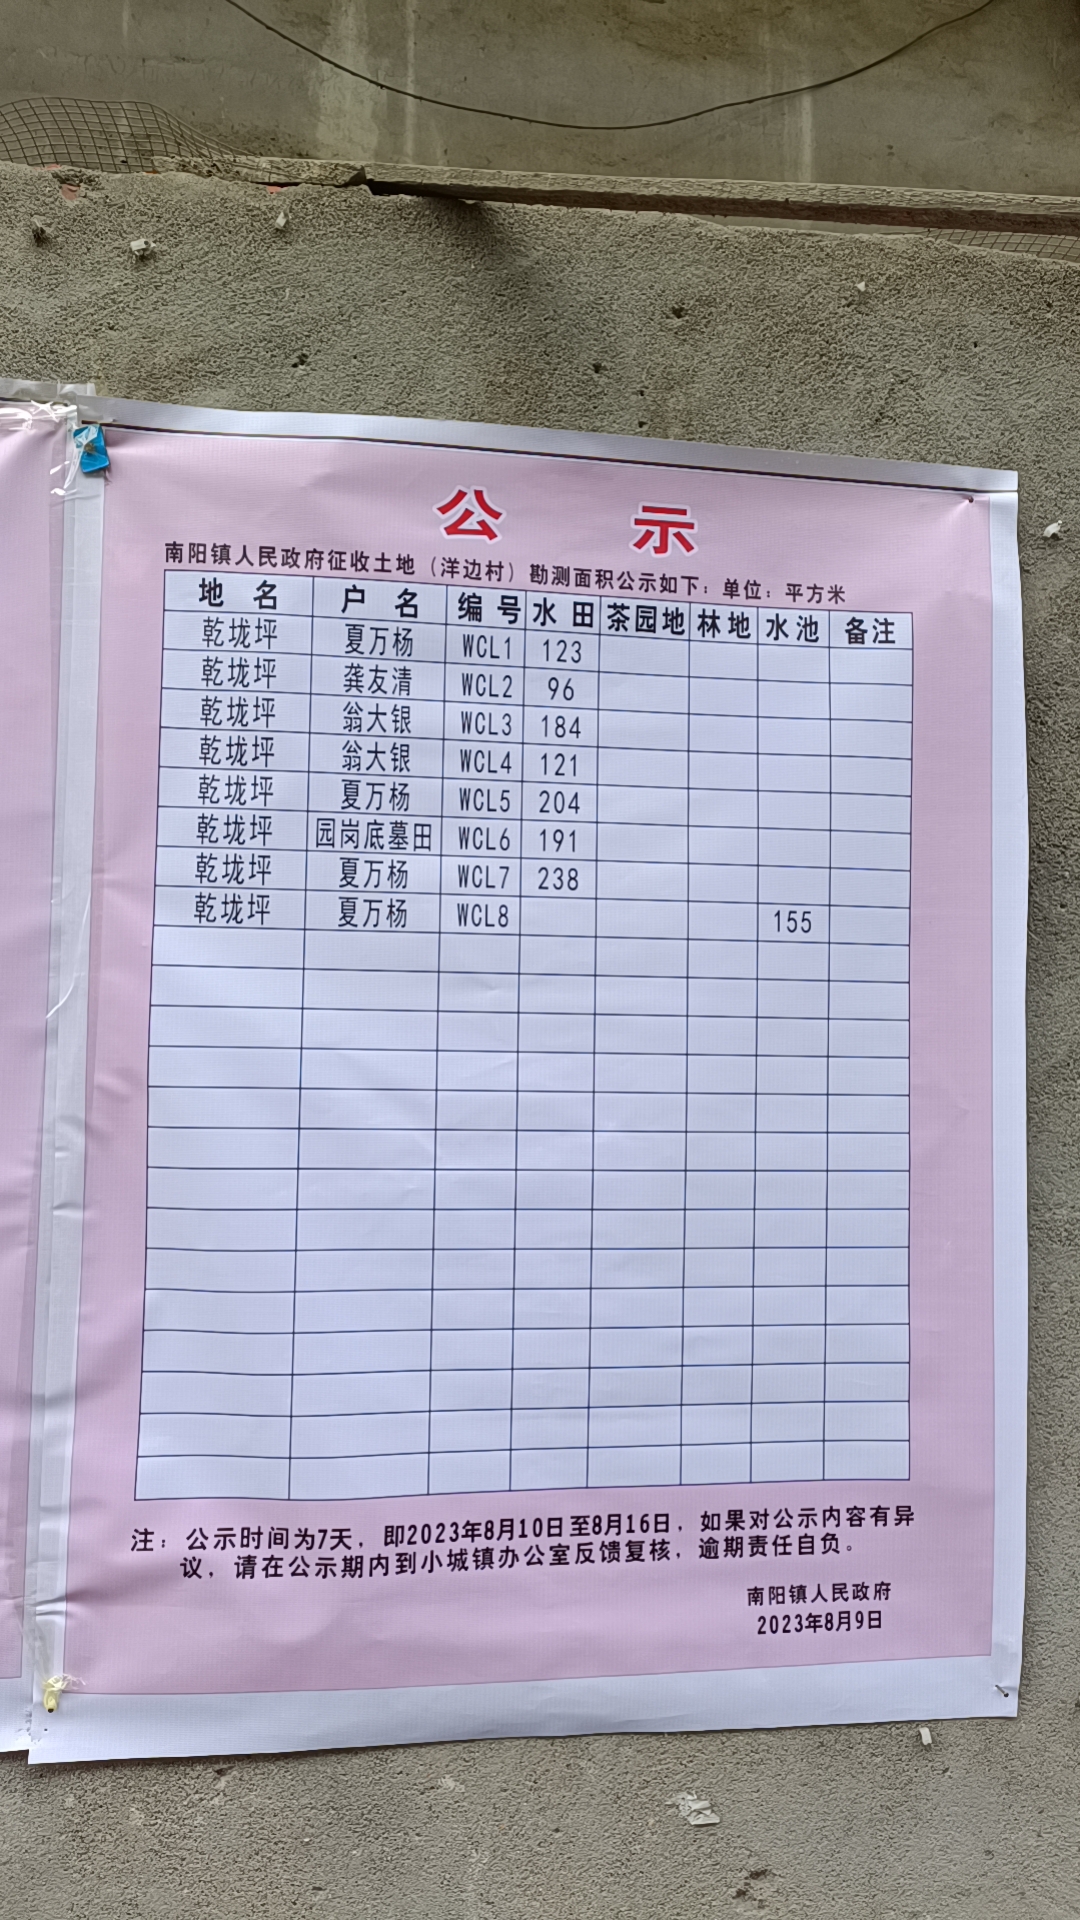 公 示
南阳镇人民政府征收土地（洋边村）勘测面积公示如下：单位：平方米
地 名 户 名 编 号 水 田 茶园地 林地 水池 备注
乾垅坪 夏万杨 WCL1 123
乾垅坪 龚友清 WCL2 96
乾垅坪 翁大银 WCL3 184
乾垅坪 翁大银 WCL4 121
乾垅坪 夏万杨 WCL5 204
乾垅坪 园岗底墓田 WCL6 191
乾垅坪 夏万杨 WCL7 238
乾垅坪 夏万杨 WCL8 155
注：公示时间为7天，即2023年8月10日至8月16日，如果对公示内容有异
议，请在公示期内到小城镇办公室反馈复核，逾期责任自负。
南阳镇人民政府
2023年8月9日